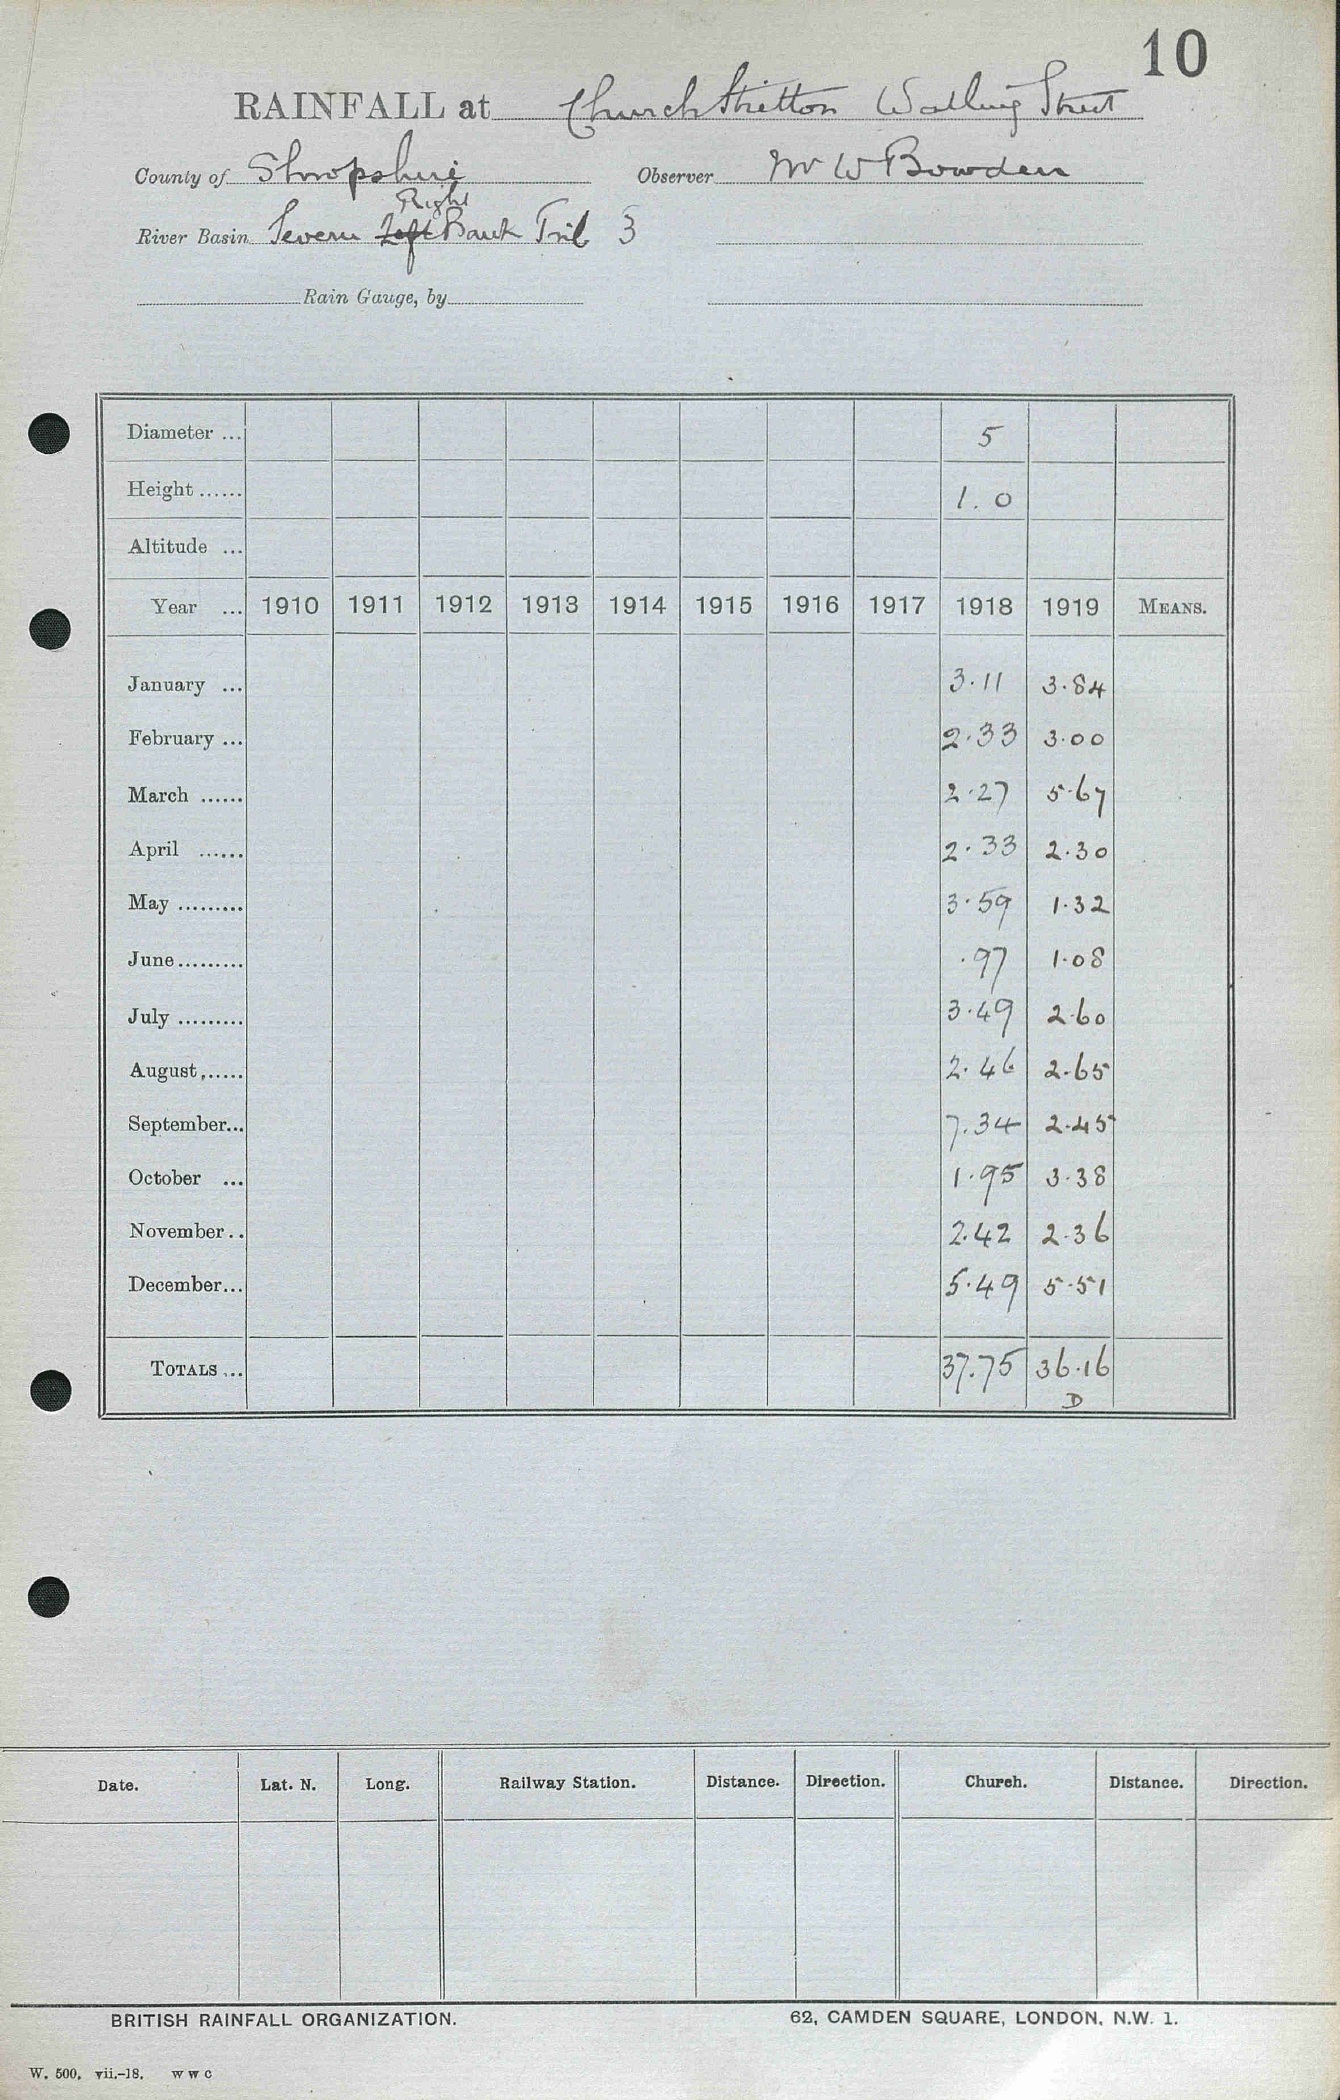 10
RAINFALL at Church Stretton Watling Street
County of Shropshire Observer Mr W Bowden
Right
River Basin Severn Left Bank Trib 3
Rain Gauge, by
Diameter ... 5
Height ...... 1.0
Altitude ...
Year ... 1910 1911 1912 1913 1914 1915 1916 1917 1918 1919 MEANS.
January ... 3.11 3.84
February ... 2.33 3.00
March ...... 2.27 5.67
April ...... 2.33 2.30
May ......... 3.59 1.32
June ......... .97 1.08
July ......... 3.49 2.60
August ...... 2.46 2.65
September... 7.34 2.45
October ... 1.95 3.38
November.. 2.42 2.36
December... 5.49 5.51
TOTALS ... 37.75 36.16
D
Date. Lat. N. Long. Railway Station. Distance. Direction. Church. Distance. Direction.
BRITISH RAINFALL ORGANIZATION. 62, CAMDEN SQUARE, LONDON, N.W. 1.
W. 500. vii.-18. W W C